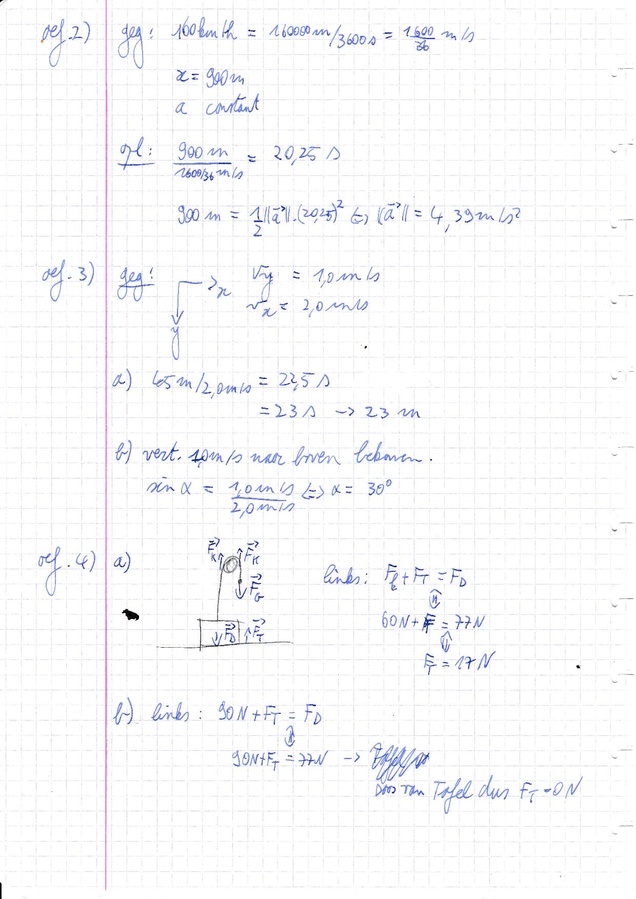 oef. 2) geg: 160 km/h = 160000 m/3600 s = 1600/36 m/s
x = 900 m
a constant
opl: 900 m / 1600/36 m/s = 20,25 s
900 m = 1/2 ||a⃗||.(20,25)² ⇔ ||a⃗|| = 4,39 m/s²
oef. 3) geg: x vy = 1,0 m/s
vx = 2,0 m/s
y
a) 45 m/2,0 m/s = 22,5 s
= 23 s → 23 m
b) vert. 1,0 m/s naar boven bekomen.
sin α = 1,0 m/s / 2,0 m/s ⇔ α = 30°
oef. 4) a) F⃗K F⃗K
F⃗G
F⃗D F⃗T
links: Fk + FT = FD
⇕
60N + F = 77N
⇕
FT = 17N
b) links: 90N + FT = FD
⇕
90N + FT = 77N →
Doos van Tafel dus FT = 0N